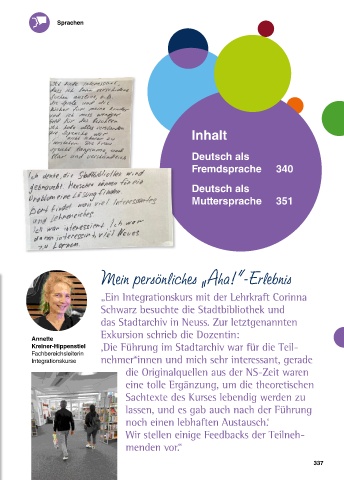 Sprachen
Ich denke, die Stadtbibliothek wird
gebraucht. Menschen können für ein
Problem eine Lösung finden.
Dort findet man viel Interessantes
und Lehrreiches.
Ich war interessiert. Ich war
daran interessiert, viel Neues
zu Lernen.
Inhalt
Deutsch als
Fremdsprache 340
Deutsch als
Muttersprache 351
Mein persönliches „Aha!“-Erlebnis
„Ein Integrationskurs mit der Lehrkraft Corinna
Schwarz besuchte die Stadtbibliothek und
das Stadtarchiv in Neuss. Zur letztgenannten
Exkursion schrieb die Dozentin:
‚Die Führung im Stadtarchiv war für die Teil-
nehmer*innen und mich sehr interessant, gerade
die Originalquellen aus der NS-Zeit waren
eine tolle Ergänzung, um die theoretischen
Sachtexte des Kurses lebendig werden zu
lassen, und es gab auch nach der Führung
noch einen lebhaften Austausch.‘
Wir stellen einige Feedbacks der Teilneh-
menden vor.“
Annette
Kreiner-Hippenstiel
Fachbereichsleiterin
Integrationskurse
337